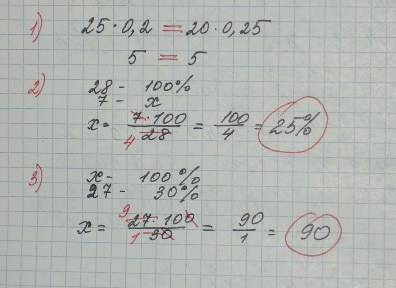 1) 25·0,2 = 20·0,25
5 = 5
2) 28 - 100%
7 - x
x = 7·100/28 = 100/4 = 25%
4
3) x - 100%
27 - 30%
9
x = 27·100/30 = 90/1 = 90
1